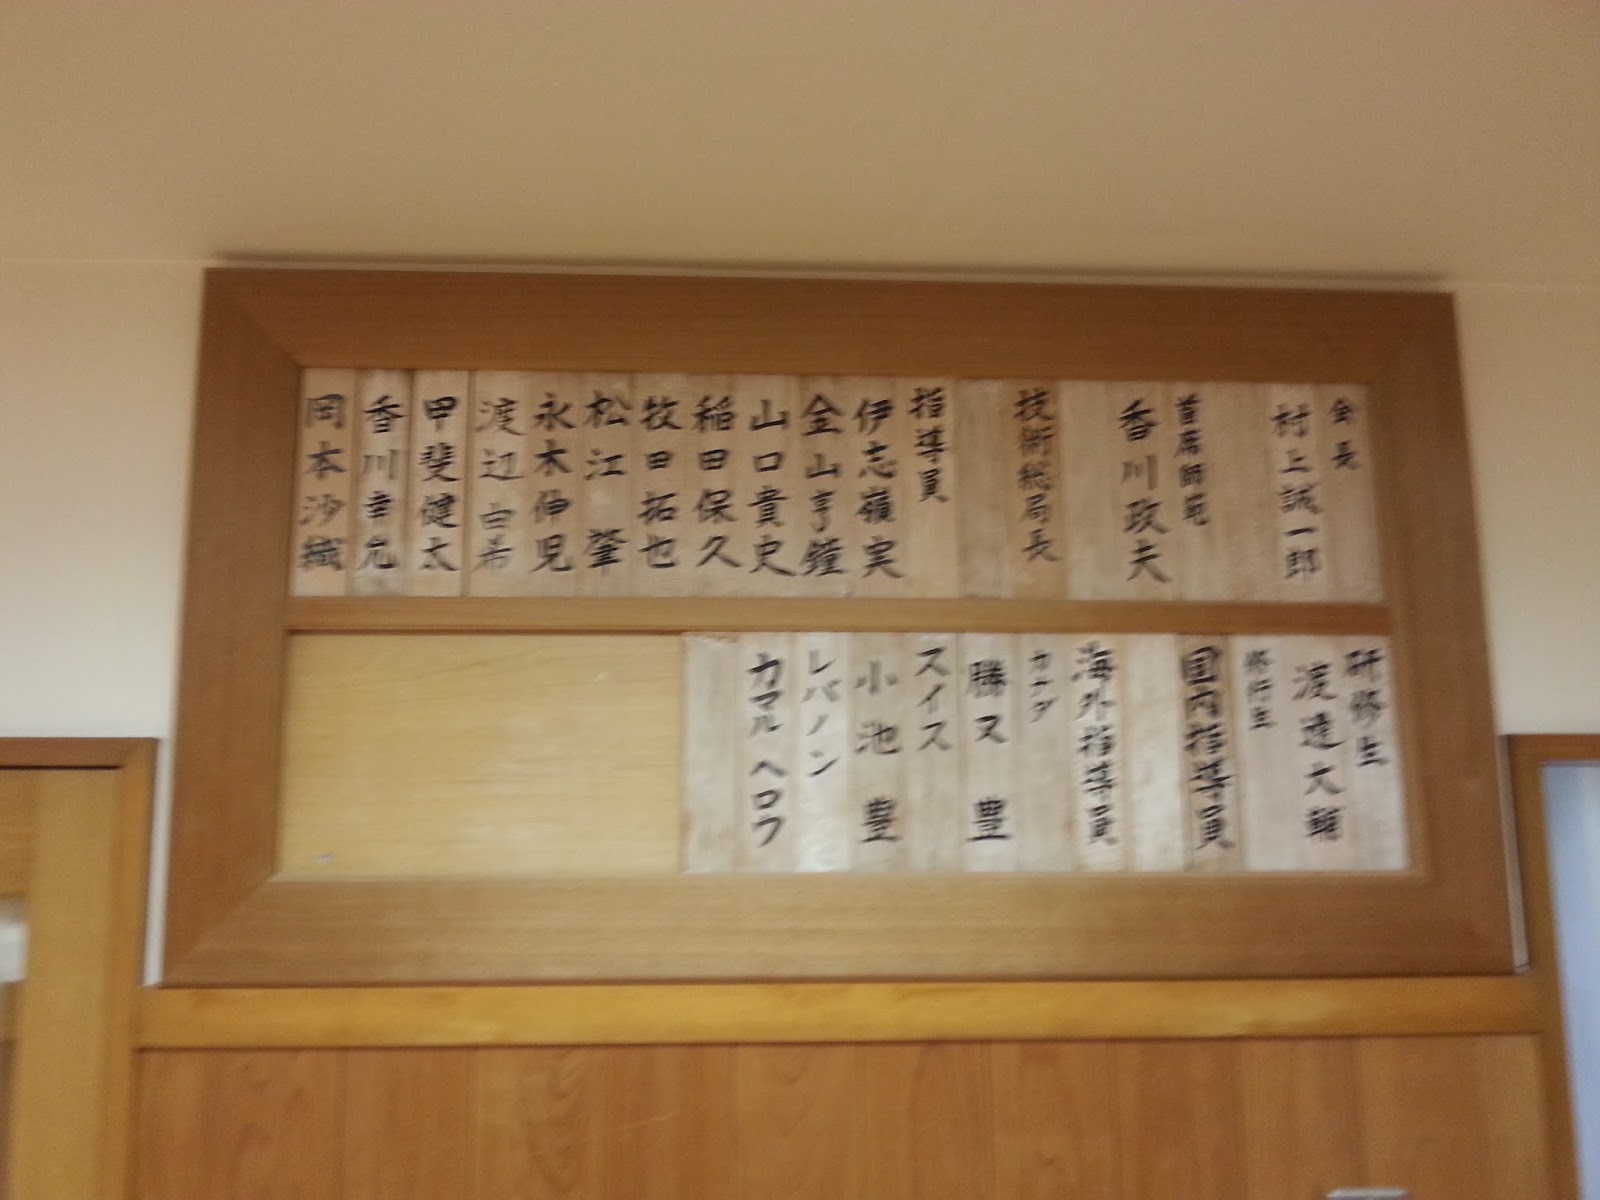 会長
村上誠一郎
首席師範
香川政夫
技術総局長
指導員
伊志嶺実
金山亨鐘
山口貴史
稲田保久
牧田拓也
松江肇
永木伸児
渡辺由希
甲斐健太
香川幸允
岡本沙織
研修生
渡邉大輔
修行生
国内指導員
海外指導員
カナダ
勝又豊
スイス
小池豊
レバノン
カマルヘロウ